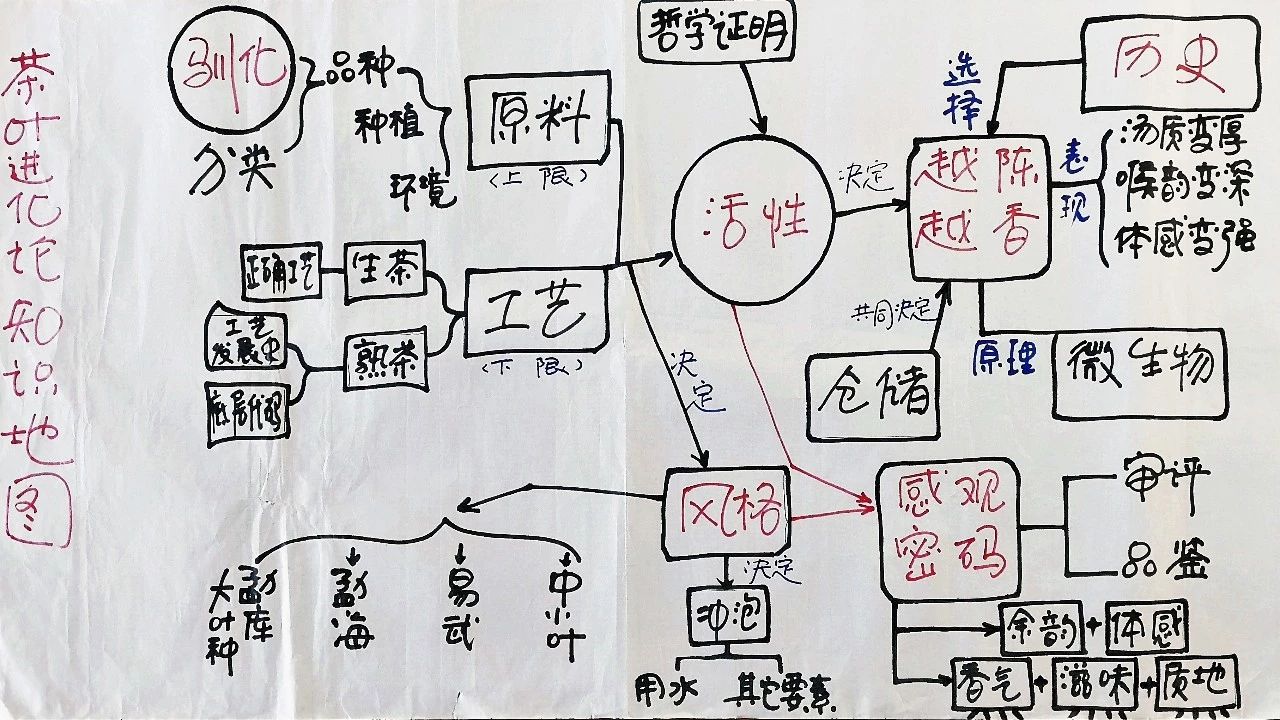 茶叶进化论知识地图
驯化
分类
品种
种植
环境
原料
（上限）
正确工艺
生茶
工艺
发展史
熟茶
底层代码
工艺
（下限）
哲学证明
活性
决定
选择
历史
越陈
越香
表现
汤质变厚
喉韵变深
体感变强
共同决定
仓储
原理
微生物
决定
风格
勐库
大叶种
勐海
易武
中小叶
决定
冲泡
用水
其它要素
感观
密码
审评
品鉴
余韵+体感
香气+滋味+质地